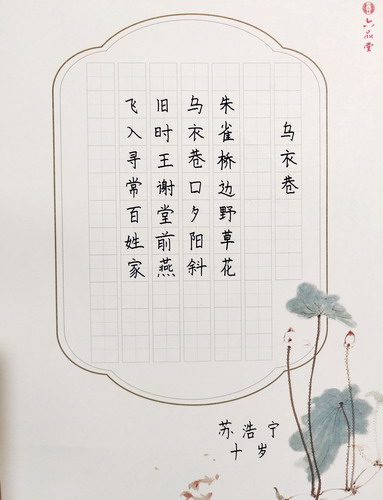 乌衣巷
朱雀桥边野草花
乌衣巷口夕阳斜
旧时王谢堂前燕
飞入寻常百姓家
苏浩宁
十岁
六品堂